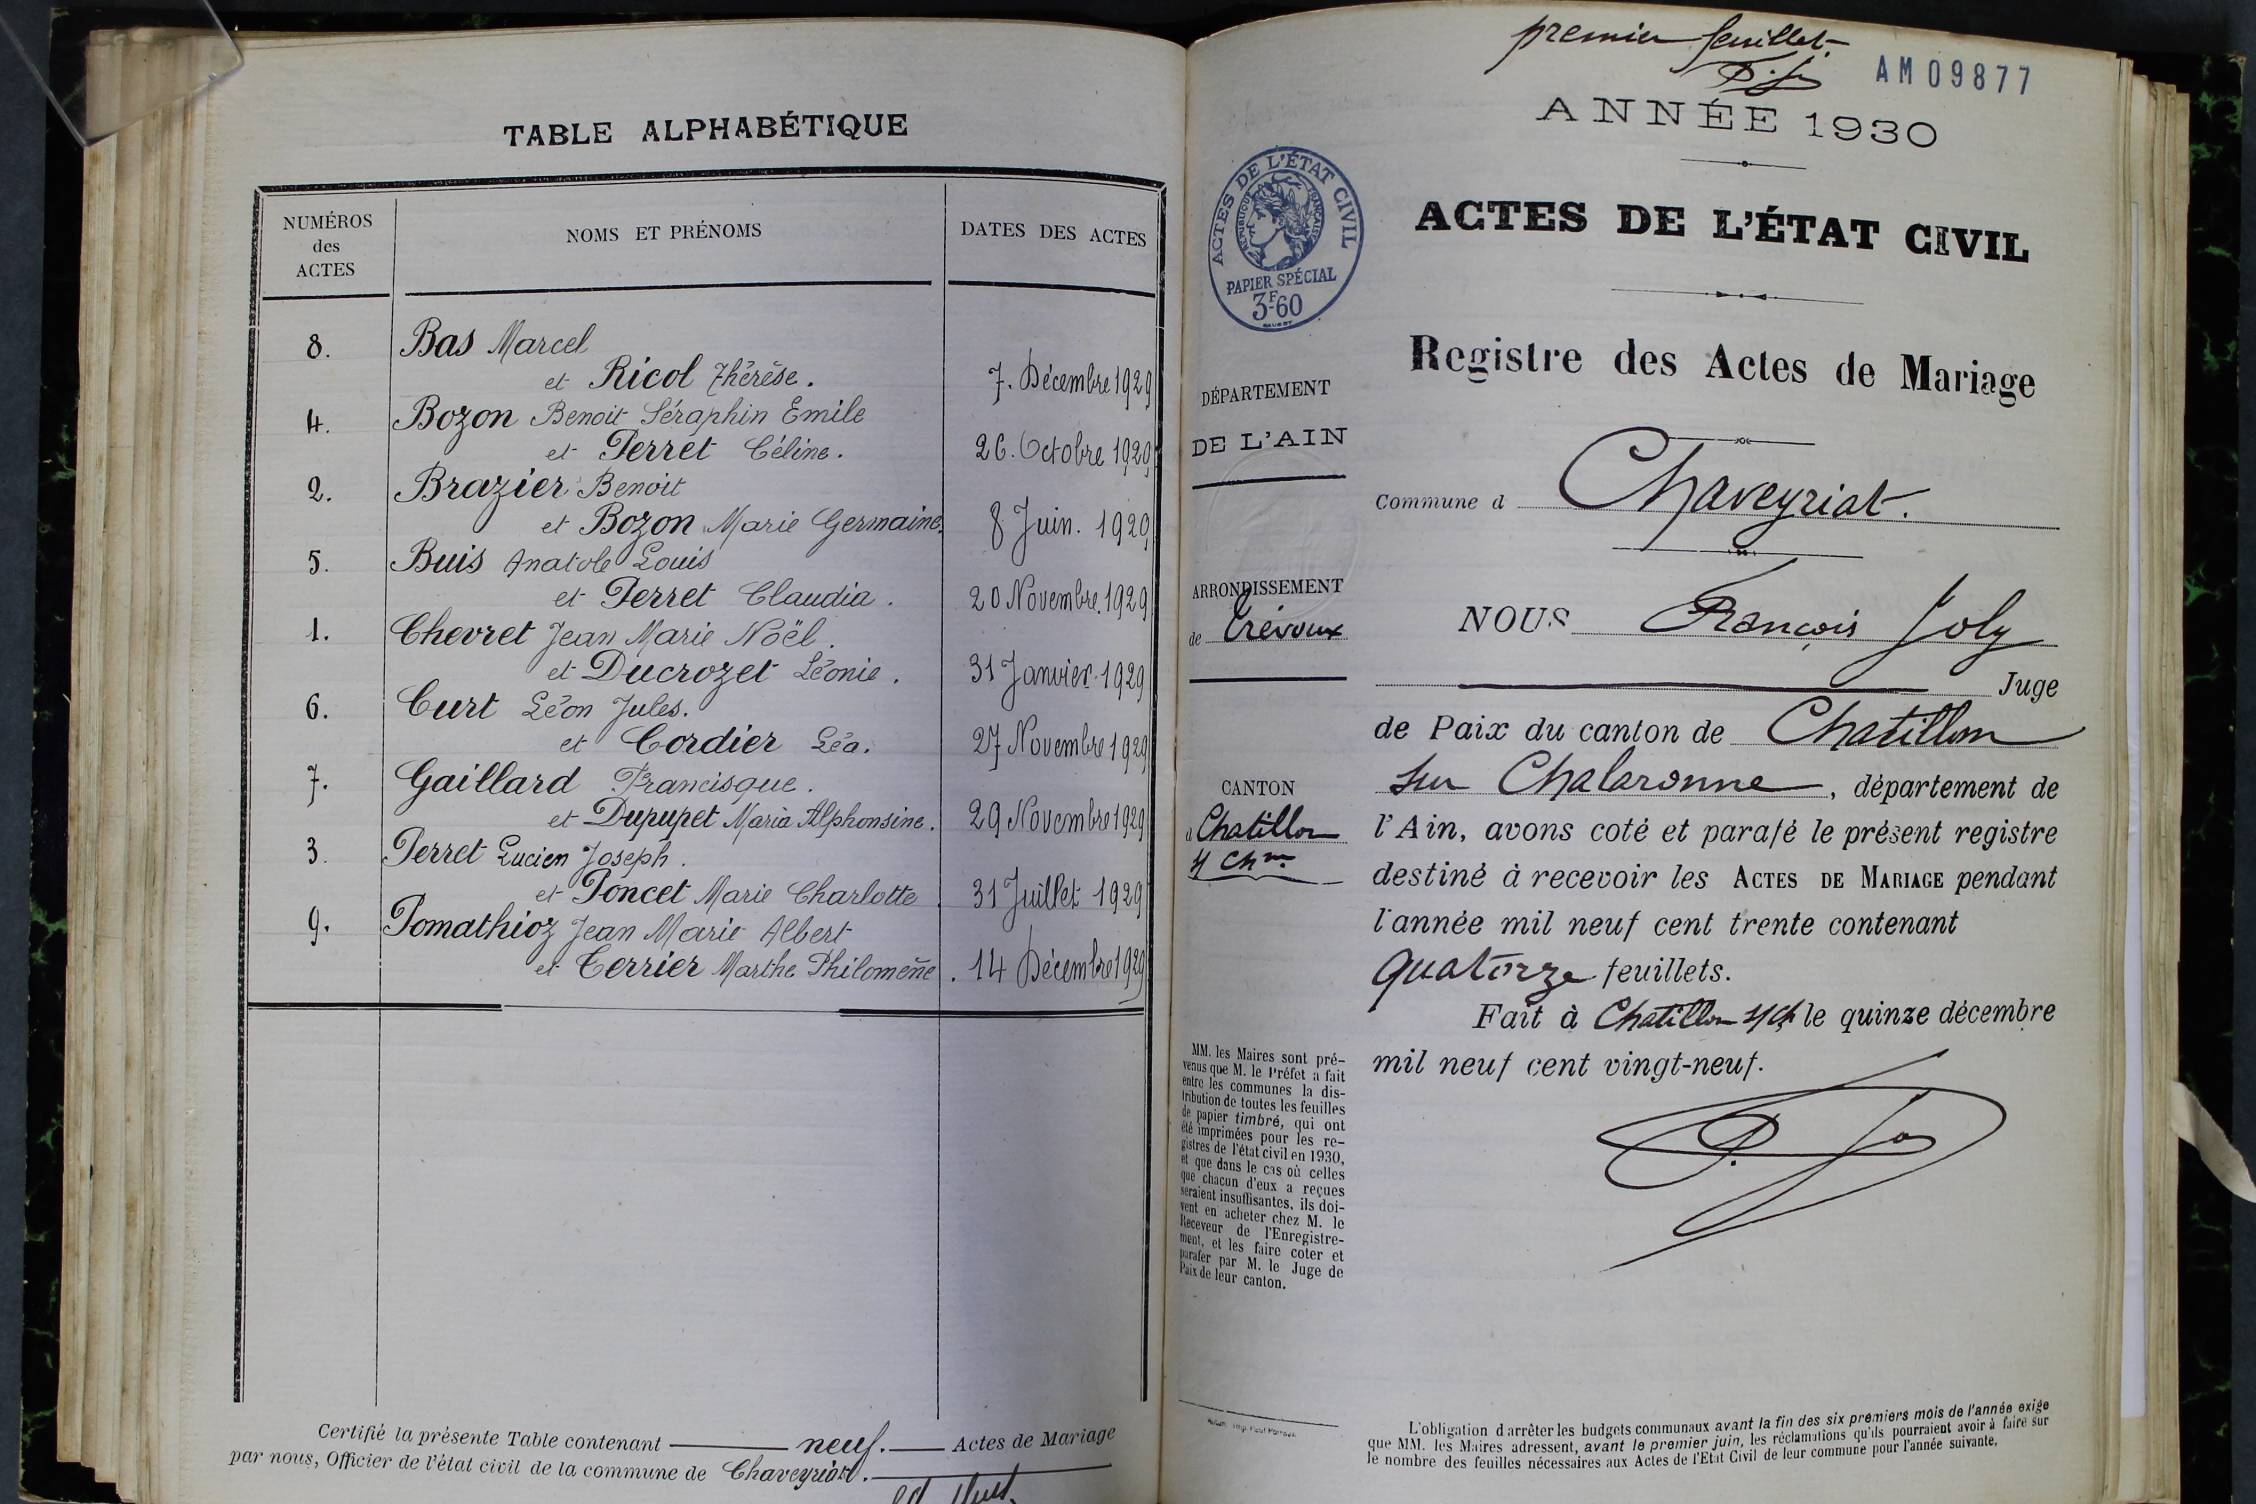 TABLE ALPHABÉTIQUE
NUMÉROS
des
ACTES
NOMS ET PRÉNOMS
DATES DES ACTES
8.
Bas Marcel
et Ricol Thérèse.
7. Décembre 1929
4.
Bozon Benoit Séraphin Emile
et Perret Céline.
26. Octobre 1929
2.
Brazier Benoit
et Bozon Marie Germaine.
8 Juin. 1929
5.
Buis Anatole Louis
et Perret Claudia.
20 Novembre 1929
1.
Chevret Jean Marie Noël.
et Ducrozet Léonie.
31 Janvier 1929
6.
Curt Léon Jules.
et Cordier Léa.
27 Novembre 1929
7.
Gaillard Francisque.
et Dupupet Maria Alphonsine.
29 Novembre 1929
3.
Perret Lucien Joseph.
et Poncet Marie Charlotte.
31 Juillet 1929
9.
Pomathioz Jean Marie Albert
et Terrier Marthe Philomène.
14 Décembre 1929
Certifié la présente Table contenant neuf. Actes de Mariage
par nous, Officier de l'état civil de la commune de Chaveyriat.
premier feuillet.
AM 09877
ANNÉE 1930
ACTES DE L'ÉTAT CIVIL
RÉPUBLIQUE FRANÇAISE
PAPIER SPÉCIAL
3F60
ACTES DE L'ÉTAT CIVIL
Registre des Actes de Mariage
DÉPARTEMENT
DE L'AIN
Commune d Chaveyriat.
ARRONDISSEMENT
de Trévoux
NOUS François Joly
Juge
de Paix du canton de Chatillon
sur Chalaronne, département de
CANTON
d Chatillon
s/ Chne
l'Ain, avons coté et parafé le présent registre
destiné à recevoir les ACTES DE MARIAGE pendant
l'année mil neuf cent trente contenant
quatorze feuillets.
Fait à Chatillon s/Ch le quinze décembre
mil neuf cent vingt-neuf.
MM. les Maires sont pré-
venus que M. le Préfet a fait
entre les communes la dis-
tribution de toutes les feuilles
de papier timbré, qui ont
été imprimées pour les re-
gistres de l'état civil en 1930,
et que dans le cas où celles
que chacun d'eux a reçues
seraient insuffisantes, ils doi-
vent en acheter chez M. le
Receveur de l'Enregistre-
ment, et les faire coter et
parafer par M. le Juge de
Paix de leur canton.
L'obligation d'arrêter les budgets communaux avant la fin des six premiers mois de l'année exige
que MM. les Maires adressent, avant le premier juin, les réclamations qu'ils pourraient avoir à faire sur
le nombre des feuilles nécessaires aux Actes de l'Etat Civil de leur commune pour l'année suivante.